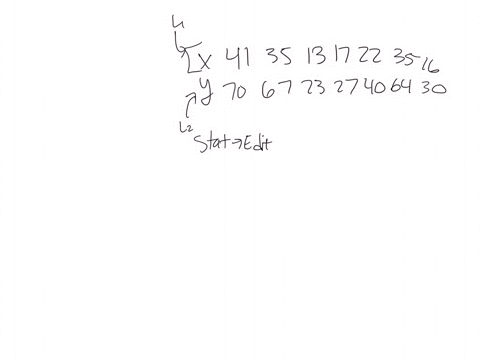 L1
X 41 35 13 17 22 35 16
y 70 67 23 27 40 64 30
L2
Stat→Edit